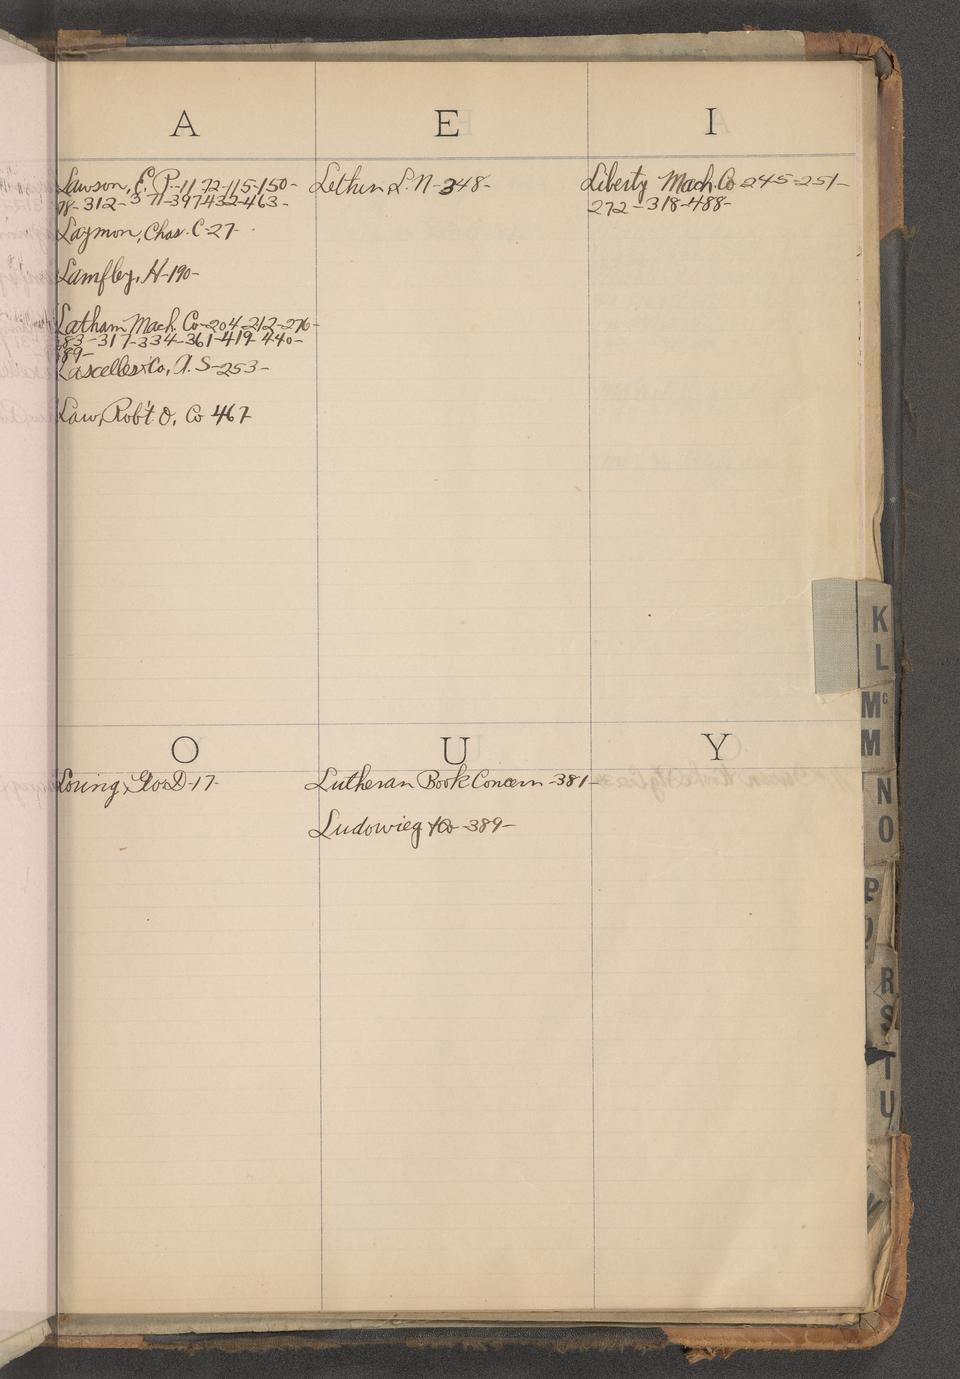 A
Lawson, E. P.-11-72-115-150-
78-312-371-397-432-463-
Laymon, Chas. C-27-
Lamfley, H-190-
Latham Mach. Co-204-212-276-
83-317-334-361-419-440-
89-
Lascelles & Co, A. S-253-
Law, Rob't O, Co 467
E
Lethin, L. N-348-
I
Liberty Mach. Co-245-251-
272-318-488-
O
Loring, Geo D-17-
U
Lutheran Book Concern-381-
Ludowieg & Co-389-
Y
K
L
Mc
M
N
O
P
Q
R
S
T
U